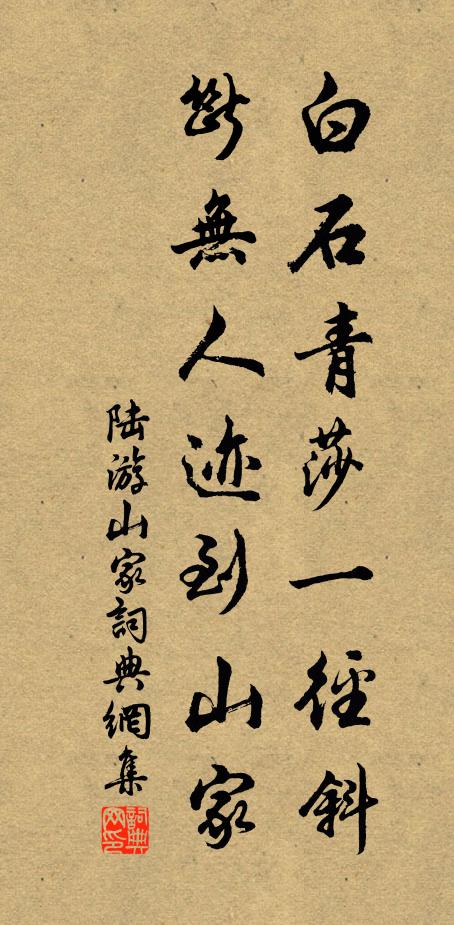 白石青莎一徑斜
斷無人迹到山家
陆游山家詞典網集
詞典網印